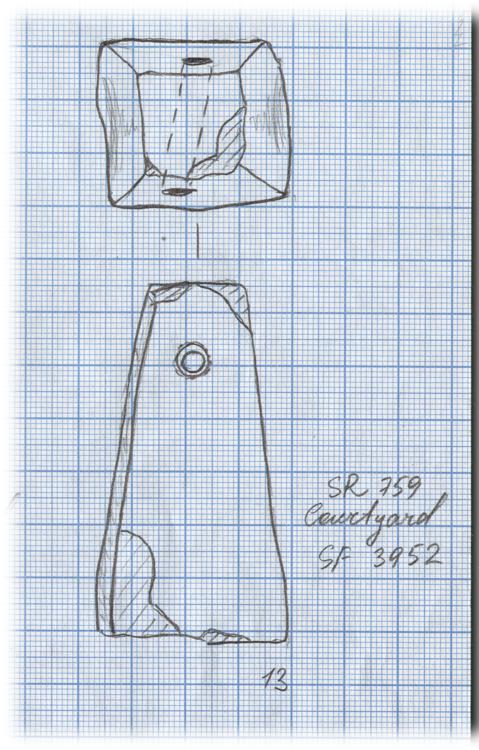 SR 759
Courtyard
SF 3952
13